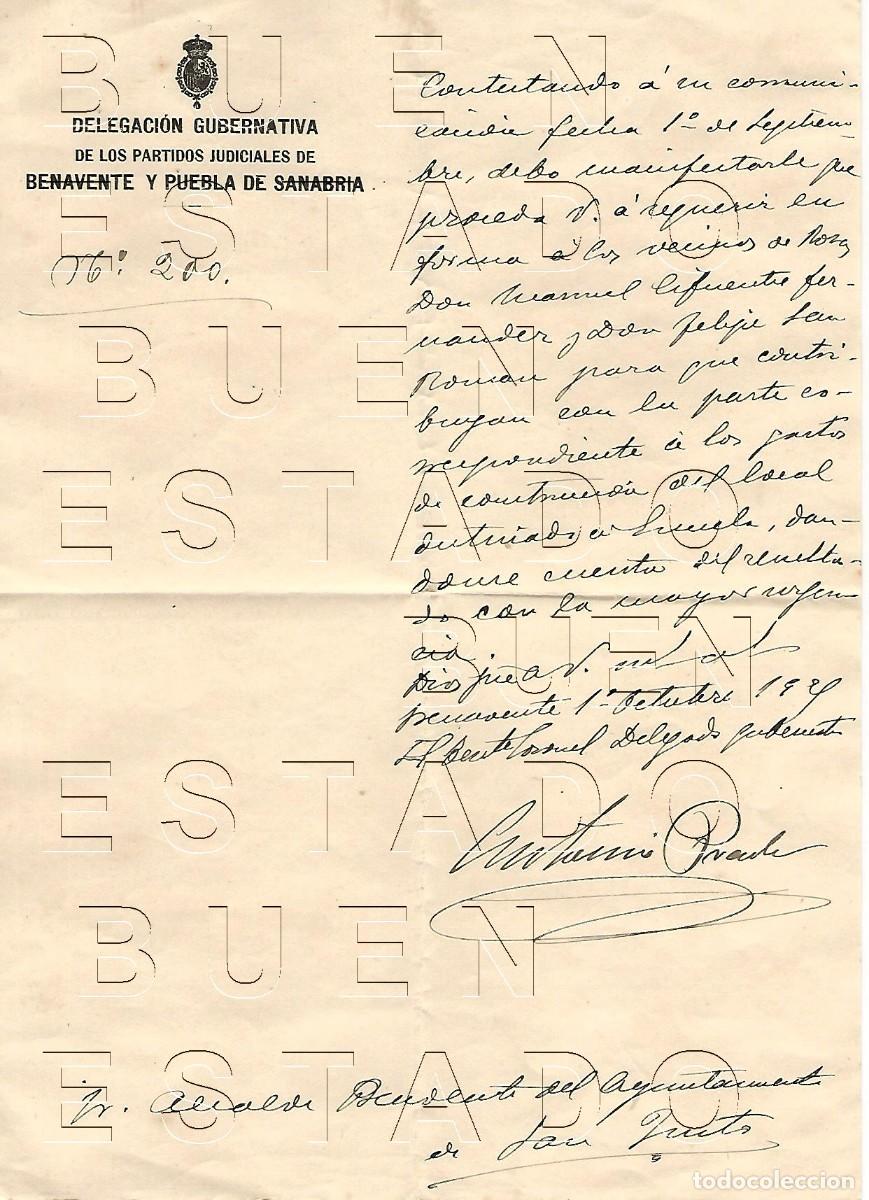 DELEGACIÓN GUBERNATIVA
DE LOS PARTIDOS JUDICIALES DE
BENAVENTE Y PUEBLA DE SANABRIA
Nº. 200.
Contestando á su comuni-
cación fecha 1º de Septiem-
bre, debo manifestarle que
proceda V. á requerir en
forma á los vecinos de Rozas
Don Manuel Cifuentes Fer-
nandez y Don Felipe San
Roman para que contri-
buyan con la parte co-
rrespondiente á los gastos
de construccion del local
destinado á Escuela, dan-
dome cuenta del resulta-
do con la mayor urgen-
cia.
Dios gue á V. m a
Benavente 1º Octubre 192
El Tente Coronel Delegado gubernativo
Antonio Prada
Sr. Alcalde Presidente del Ayuntamiento
de San Justo
BUEN
ESTADO
BUEN
ESTADO
BUEN
ESTADO
BUEN
ESTADO
todocoleccion.net